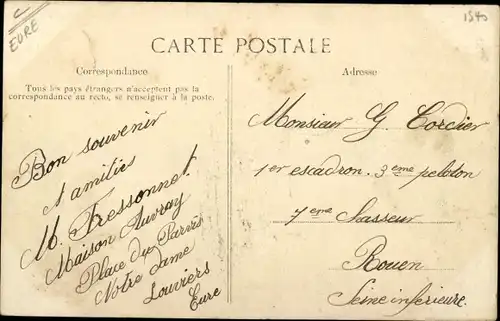 C
EURE
1540
CARTE POSTALE
Correspondance
Tous les pays étrangers n'acceptent pas la
correspondance au recto, se renseigner à la poste.
Bon souvenir
d'amitiés
M. Fressonnet
Maison Auvray
Place du Parvis
Notre Dame
Louviers
Eure
Adresse
Monsieur G. Cordier
1er escadron. 3eme peloton
7eme Chasseur
Rouen
Seine inférieure.